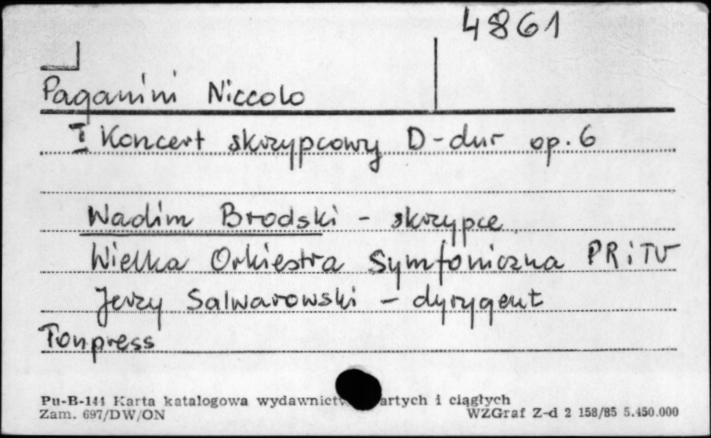 4861
Paganini Niccolo
I Koncert skrzypcowy D-dur op. 6
Wadim Brodski - skrzypce
Wielka Orkiestra Symfoniczna PRiTV
Jerzy Salwarowski - dyrygent
Tonpress
Pu-B-141 Karta katalogowa wydawnictw artych i ciągłych
Zam. 697/DW/ON WZGraf Z-d 2 158/85 5.450.000